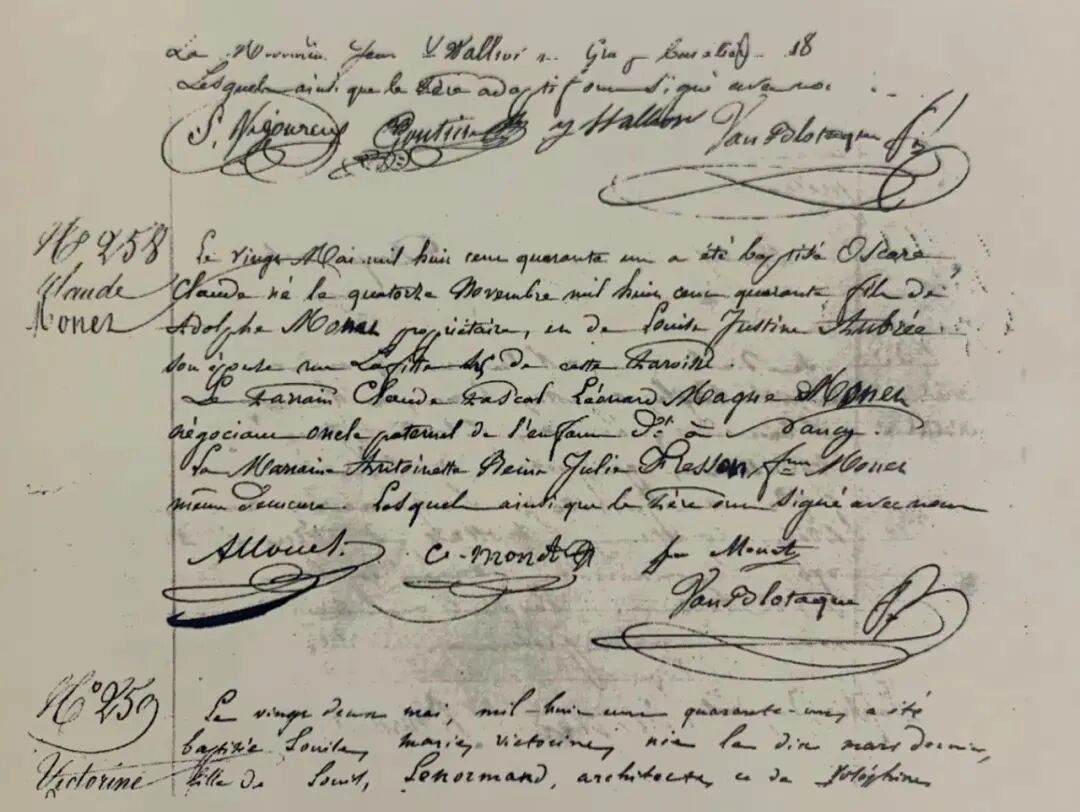 Lesquels ainsi que le Père adoptif ont Signé avec nous
S. Vigoureux
Van Blotaque
No 258
Claude
Monet
Le vingt Mai mil huit cent quarante un a été baptisé Oscare
Claude né le quatorze Novembre mil huit cent quarante fils de
Adolphe Monet propriétaire, et de Louise Justine Aubrée
son épouse rue Lafitte 45 de cette Paroisse.
Le Parrain Claude Pascal Léonard Magne Monet
négociant oncle paternel de l'enfant Dt à Nancy.
La Marraine Antoinette Reine Julie Resson fme Monet
même demeure. Lesquels ainsi que le Père ont Signé avec nous
AMonet. C. Monet fe Monet
Van Blotaque
No 259
Victorine
Le vingt deux mai, mil-huit cent quarante-un, a été
baptisée Louise, marie, victorine, née le dix mars dernier,
fille de Louis, Lenormand, architecte et de